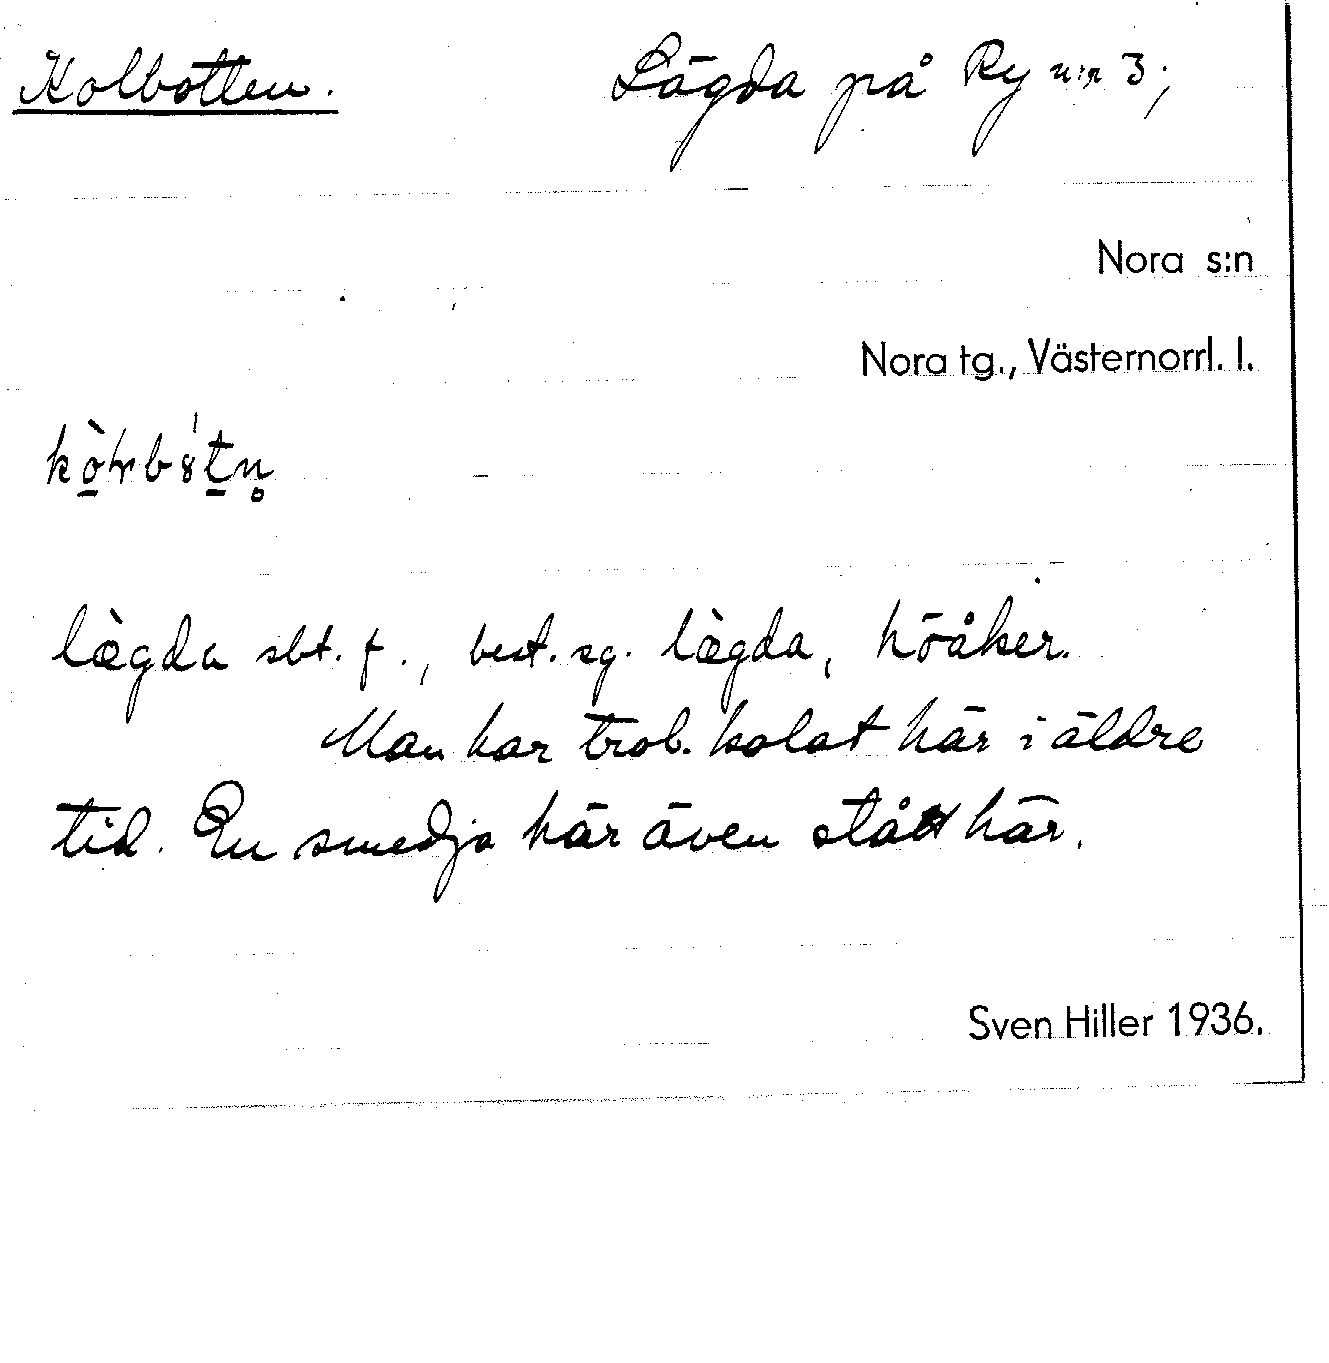 Kolbotten. Lägda på Ry n:r 3;
Nora s:n
Nora tg., Västernorrl. l.
lægda sbt. f., best. sg. lægda, höåker.
Man har trol. kolat här i äldre
tid. En smedja här även stått här.
Sven Hiller 1936.